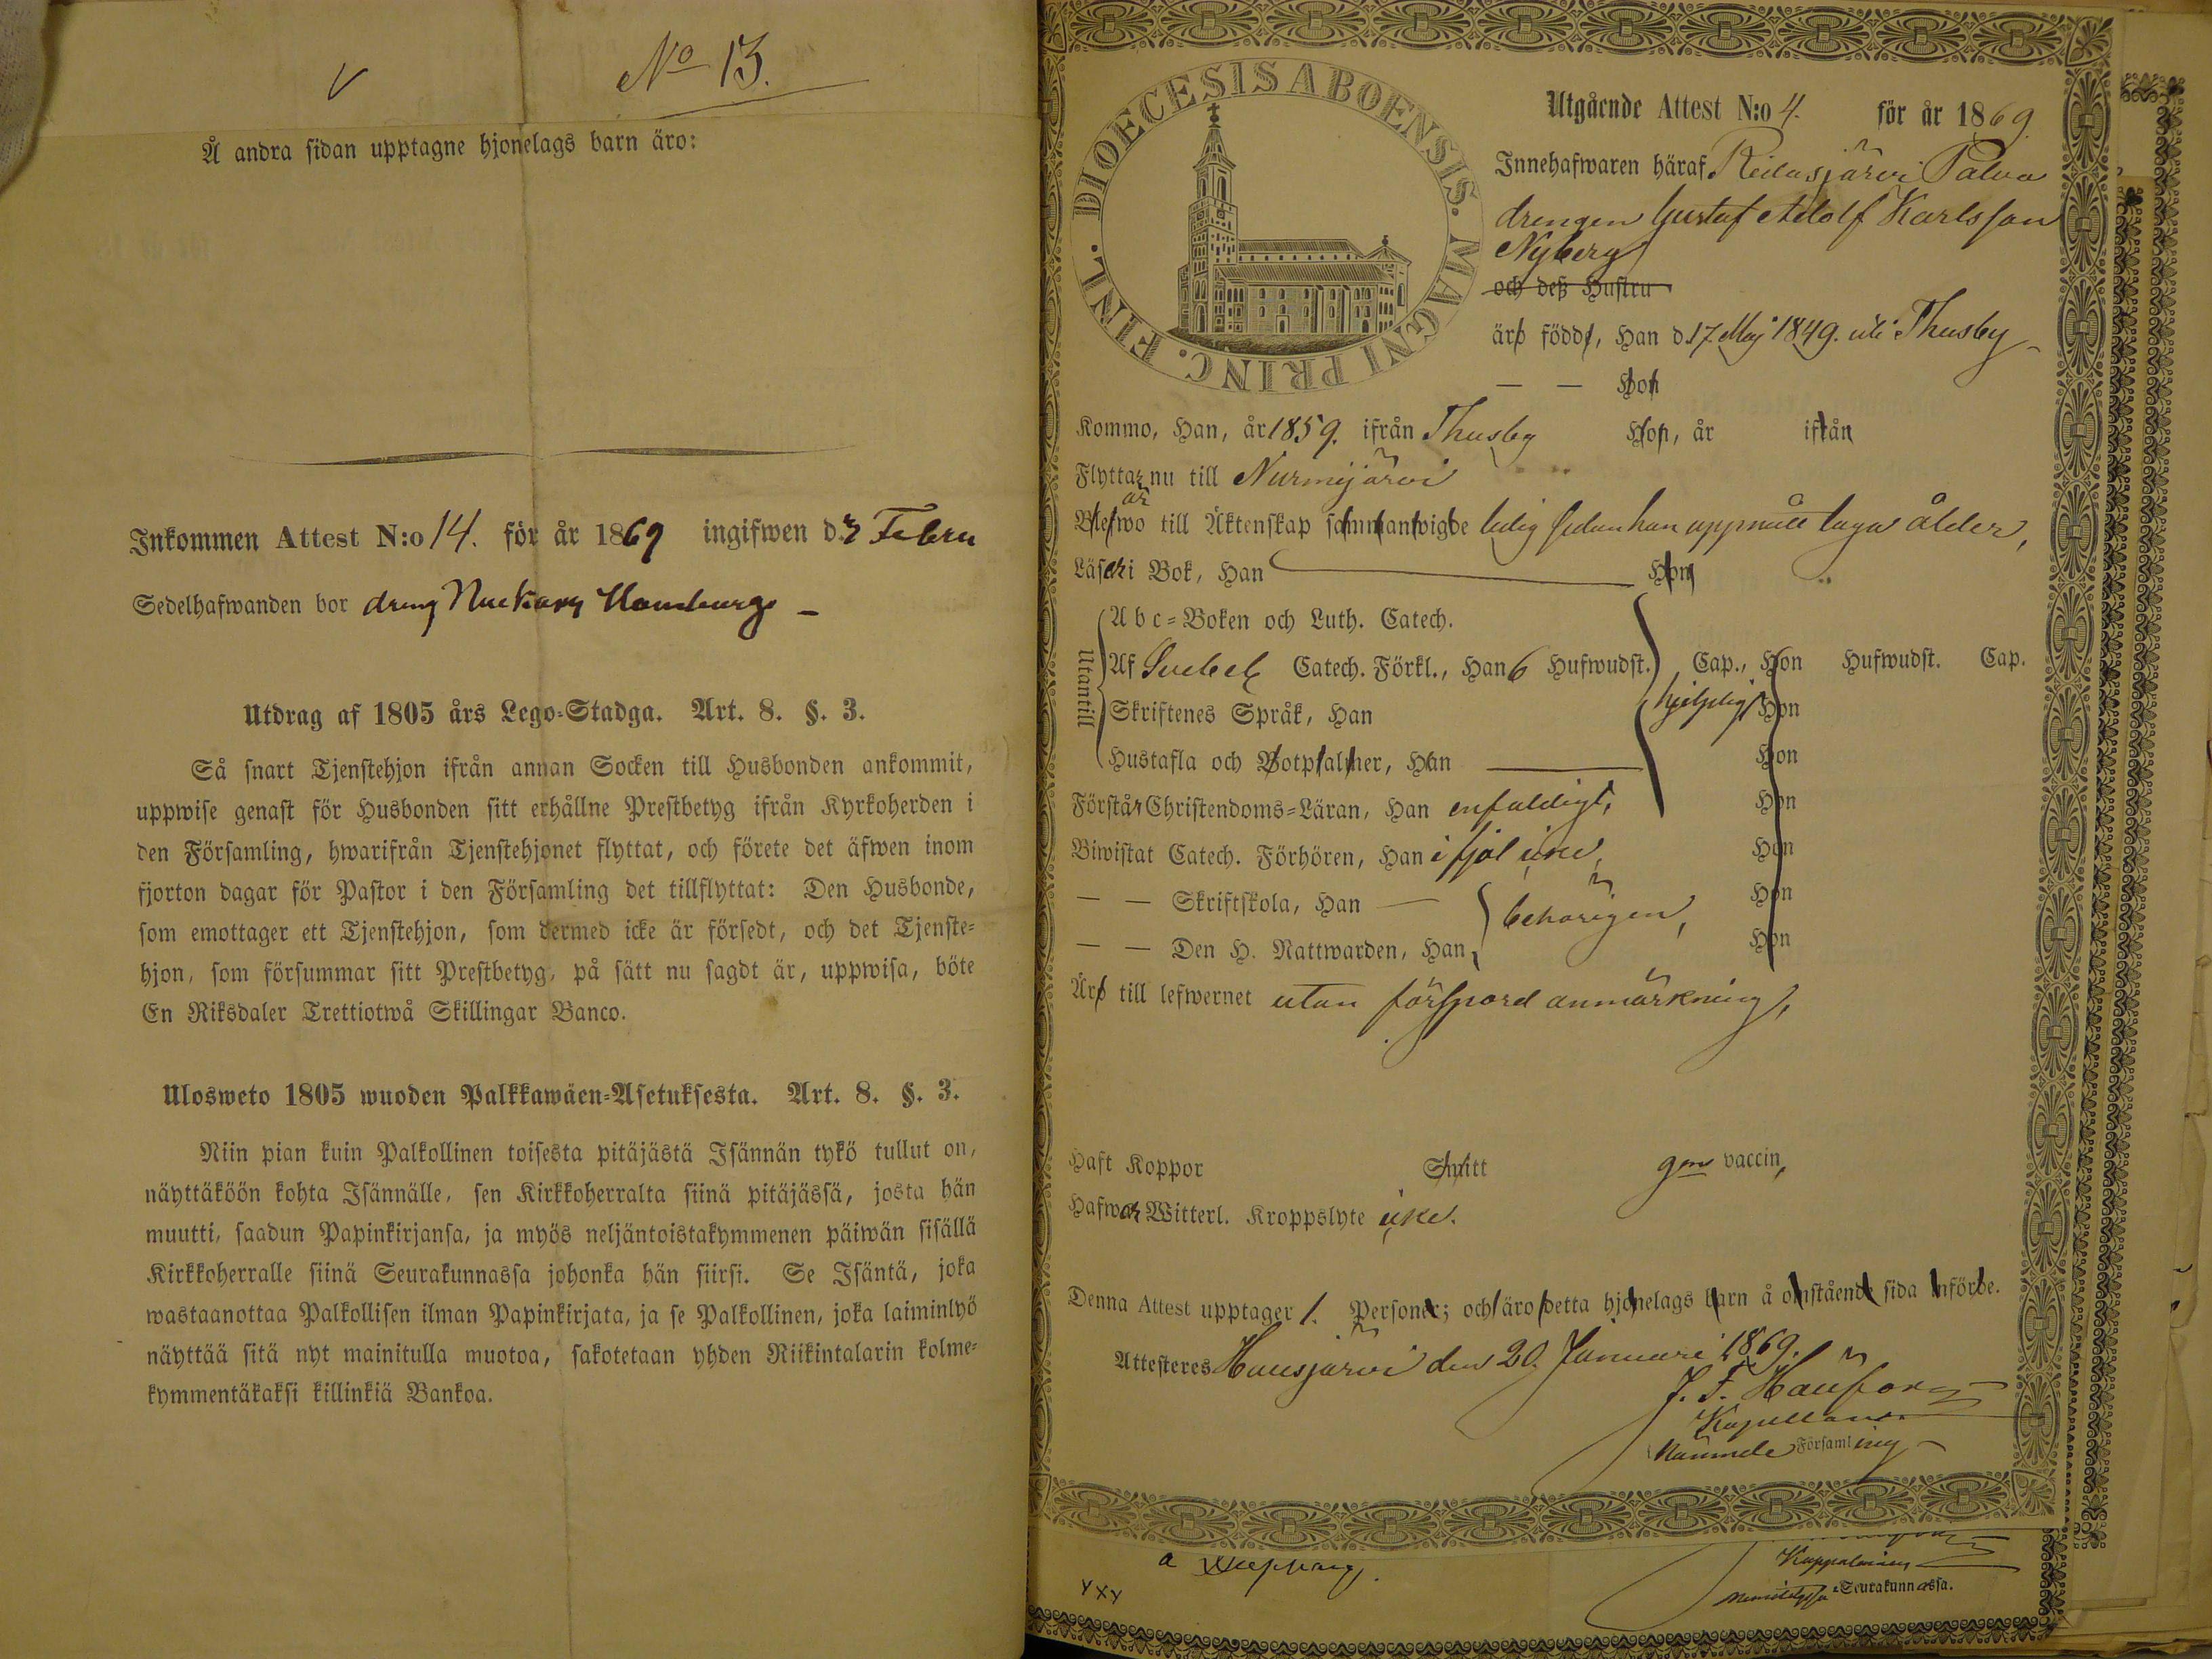 No 13.
Å andra sidan upptagne hjonelags barn äro:
Inkommen Attest N:o 14. för år 1869 ingifwen d. 3 Febru
Sedelhafwanden bor dreng Nuckars
Utdrag af 1805 års Lego-Stadga. Art. 8. §. 3.
Så snart Tjenstehjon ifrån annan Socken till Husbonden ankommit,
uppwise genast för Husbonden sitt erhållne Prestbetyg ifrån Kyrkoherden i
den Församling, hwarifrån Tjenstehjonet flyttat, och förete det äfwen inom
fjorton dagar för Pastor i den Församling det tillflyttat: Den Husbonde,
som emottager ett Tjenstehjon, som dermed icke är försedt, och det Tjenste-
hjon, som försummar sitt Prestbetyg, på sätt nu sagdt är, uppwisa, böte
En Riksdaler Trettiotwå Skillingar Banco.
Ulosweto 1805 wuoden Palkkawäen-Asetuksesta. Art. 8. §. 3.
Niin pian kuin Palkollinen toisesta pitäjästä Isännän tykö tullut on,
näyttäköön kohta Isännälle, sen Kirkkoherralta siinä pitäjässä, josta hän
muutti, saadun Papinkirjansa, ja myös neljäntoistakymmenen päiwän sisällä
Kirkkoherralle siinä Seurakunnassa johonka hän siirsi. Se Isäntä, joka
wastaanottaa Palkollisen ilman Papinkirjata, ja se Palkollinen, joka laiminlyö
näyttää sitä nyt mainitulla muotoa, sakotetaan yhden Riikintalarin kolme-
kymmentäkaksi killinkiä Bankoa.
DIOECESIS ABOENSIS. MAGNI PRINC. FINL.
Utgående Attest N:o 4. för år 1869.
Innehafwaren häraf Ridasjärvi Palva
drengen Gustaf Adolf Karlsson
Nyberg
och deß Hustru
äro födde, Han d. 17. Maj 1849. uti Thusby
— — Hon
Kommo, Han, år 1859. ifrån Thusby Hon, år ifrån
Flyttar nu till Nurmijärvi
är
Blefwo till Äktenskap sammanwigde ledig sedan han uppnått laga ålder,
Läser i Bok, Han Hon
Utantill
Abc-Boken och Luth. Catech.
Af Svebeli Catech. Förkl., Han 6 Hufwudst. Cap., Hon Hufwudst. Cap.
Skriftenes Språk, Han hjelpligt Hon
Hustafla och Botpsalmer, Han Hon
Förstår Christendoms-Läran, Han enfaldigt, Hon
Biwistat Catech. Förhören, Han i fjol icke, Hon
— — Skriftskola, Han — behörigen, Hon
— — Den H. Nattwarden, Han Hon
Äro till lefwernet utan förspord anmärkning,
Haft Koppor Smitt gm vaccin,
Hafwa Witterl. Kroppslyte icke.
Denna Attest upptager 1. Personer; och äro detta hjonelags barn å omstående sida införde.
Attesteres Hausjärvi den 20. Januari 1869.
Kapellan
Nämnde Församling
Kappalainen
Seurakunnassa.